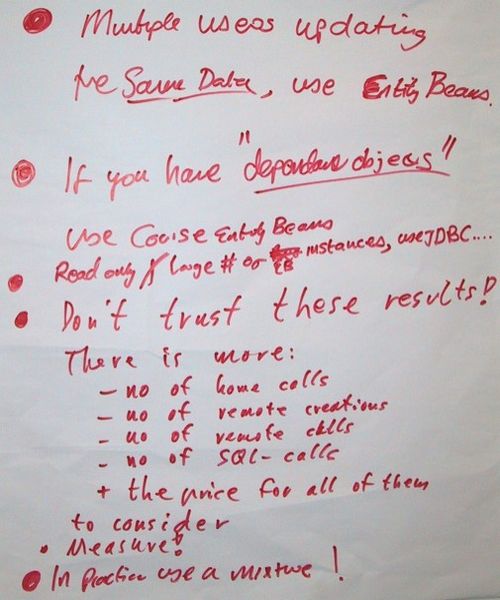 Multiple users updating
the Same Data, use Entity Beans.
If you have "dependend objects"
use Course Entity Beans
Read only / large # of EB instances, use JDBC....
Don't trust these results!
There is more:
- no of home calls
- no of remote creations
- no of remote calls
- no of SQL-calls
+ the price for all of them
to consider
• Measure!
In Practice use a mixture!